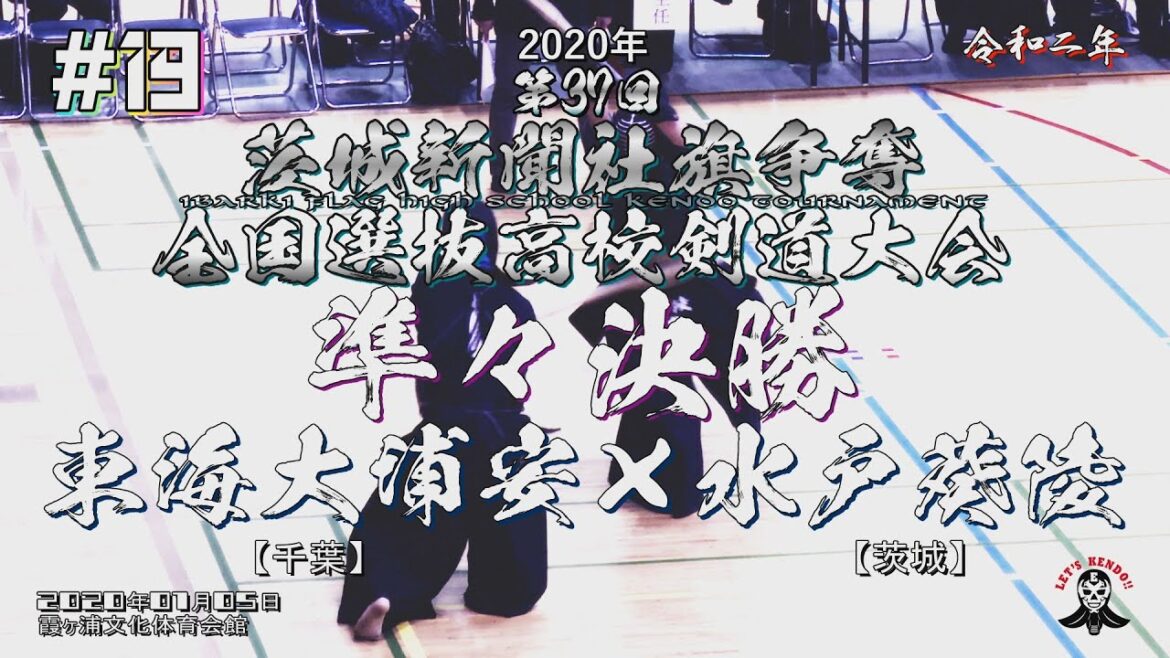 #19
2020年
令和二年
第37回
茨城新聞社旗争奪
IBARKI FLAG HIGH SCHOOL KENDO TOURNAMENT
全国選抜高校剣道大会
準々決勝
東海大浦安×水戸葵陵
【千葉】
【茨城】
2020年01月05日
霞ヶ浦文化体育会館
LET'S KENDO!!
主任